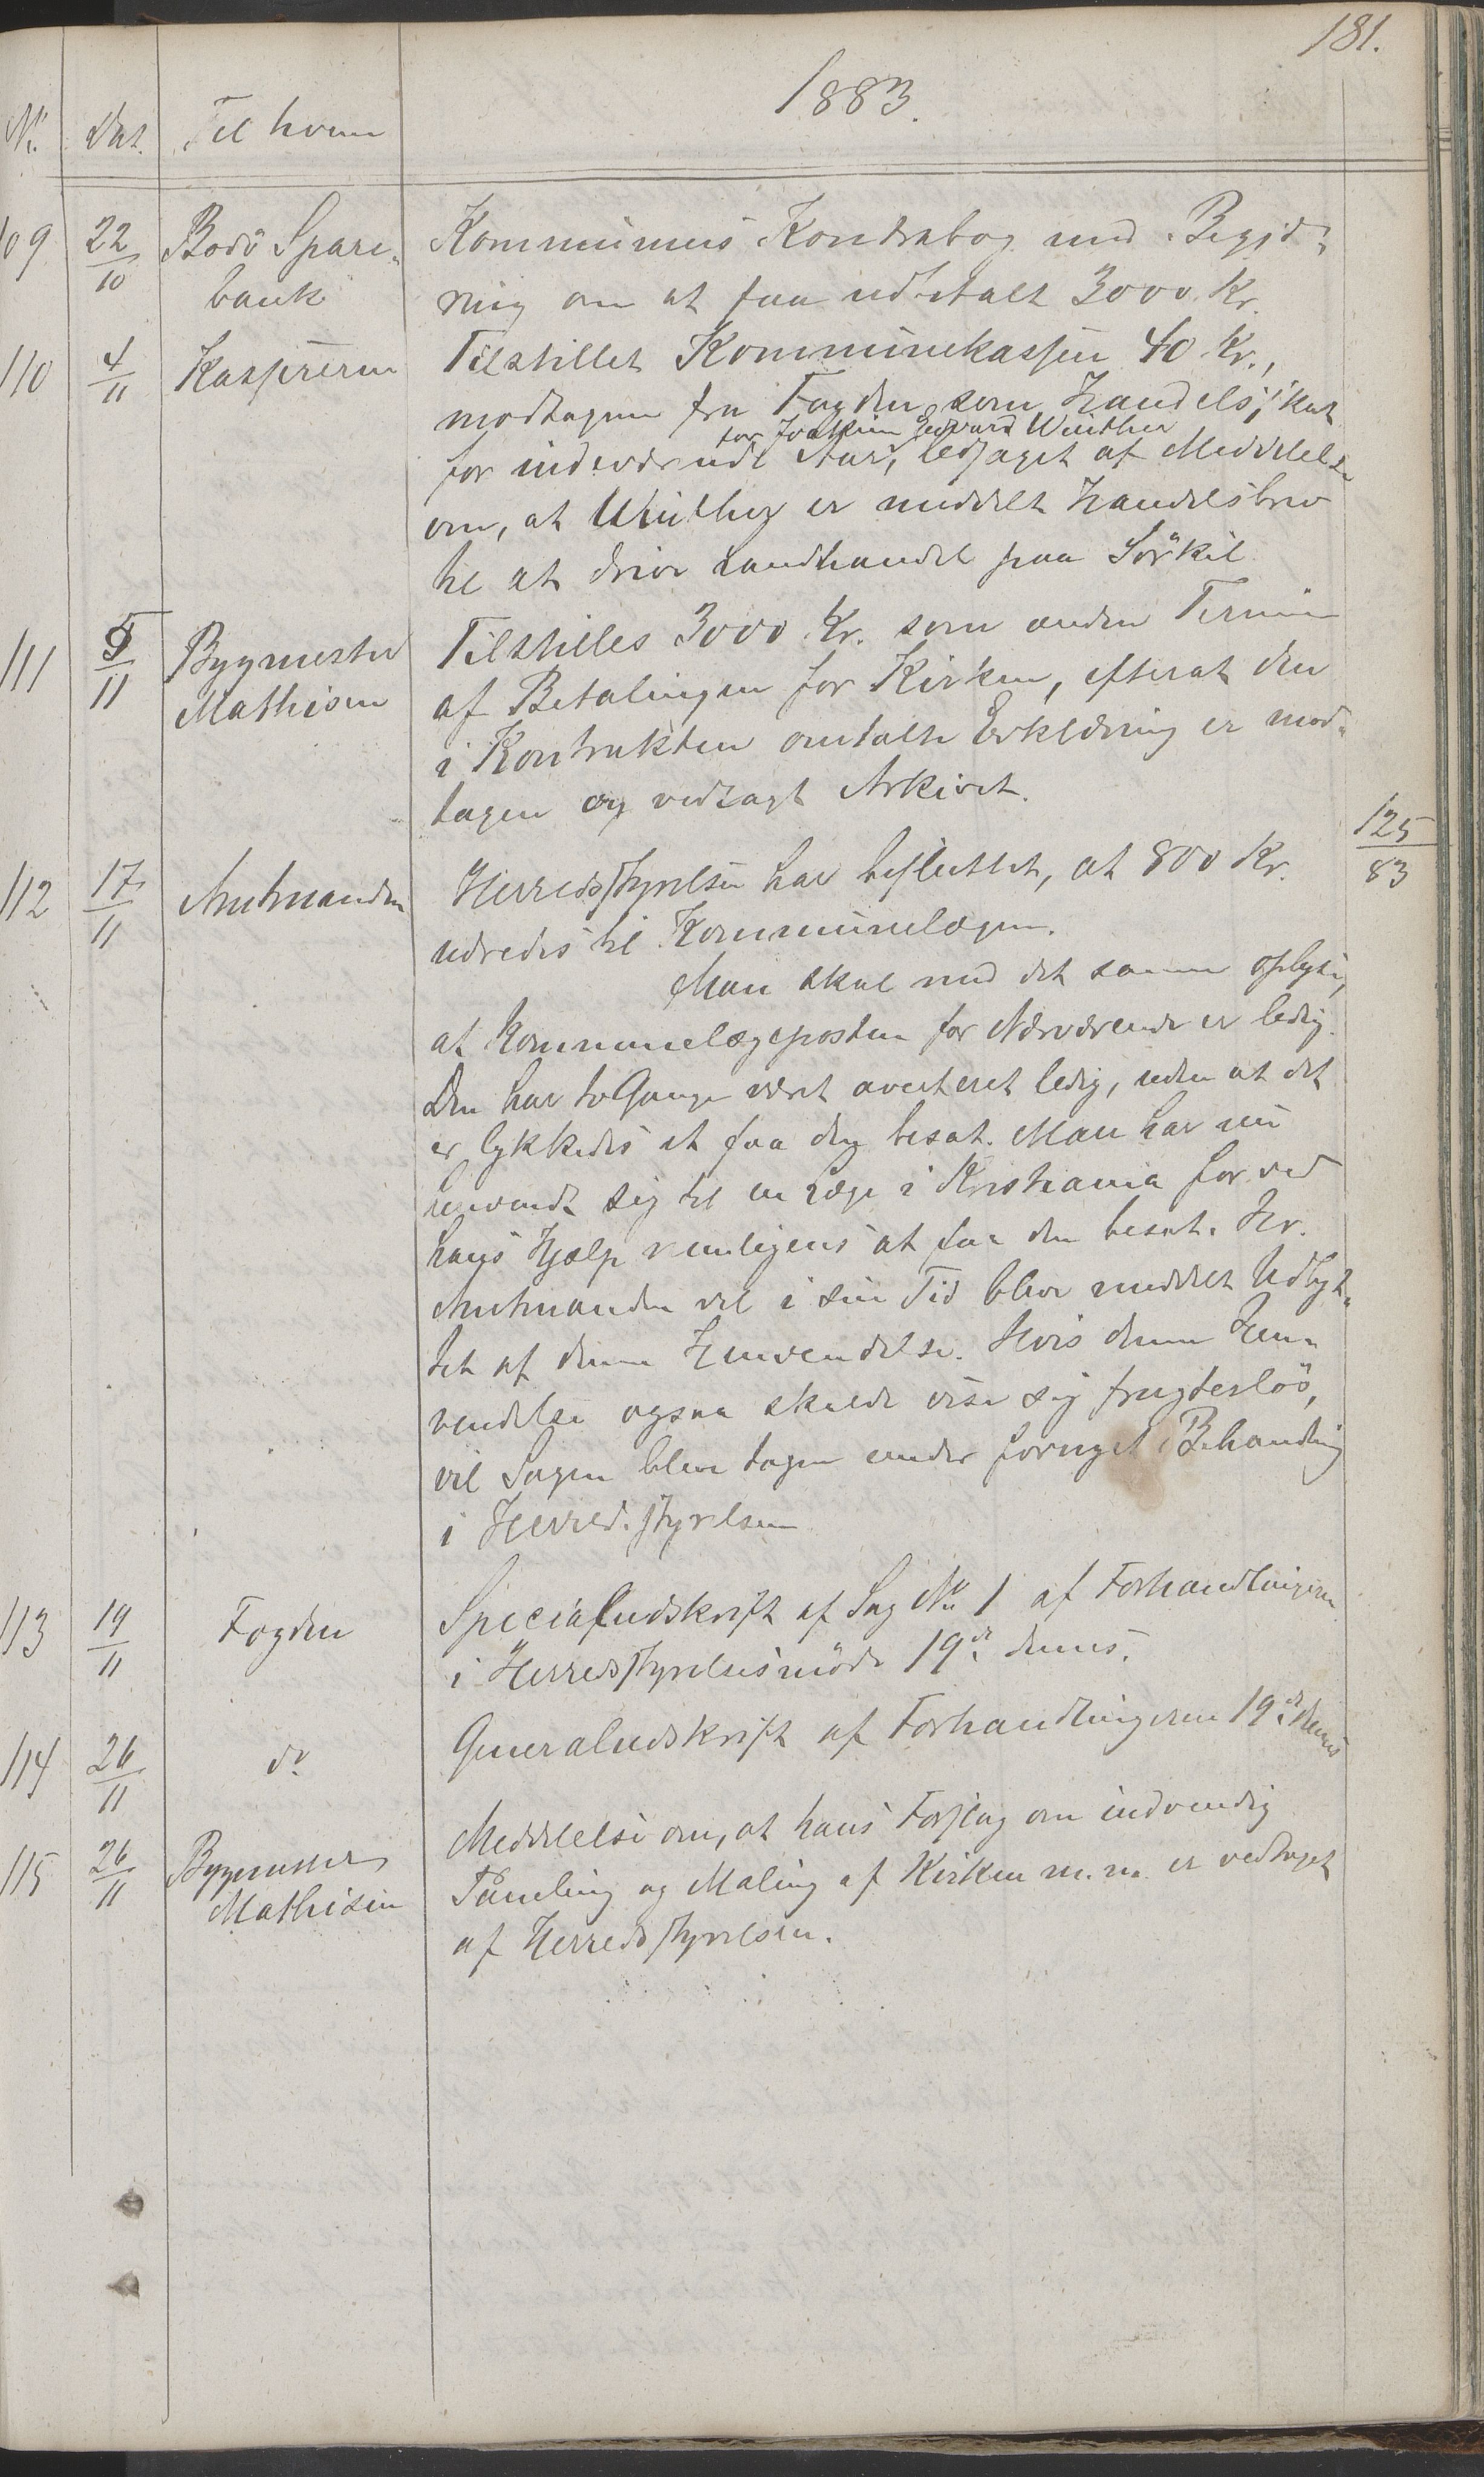 181.
1883.
Nr. Dat. Til hvem
109 22/10 Bodö Spare-
bank
Kommunens Kontrabog med Begjæ-
ring om at faa udbetalt 3000 Kr.
110 4/11 Kassereren
Tilstillet Kommunekassen 40 Kr.,
modtagne fra Fogden som Handelsskat
for Joakim Edvard Winther
for indeværende Aar, ledsaget af Meddelelse
om, at Winther er meddelt Handelsbrev
til at drive Landhandel paa Sörkil.
111 5/11 Bygmester
Mathisen
Tilstilles 3000 Kr. som anden Termin
af Betalingen for Kirken, efterat den
i Kontrakten omtalte Erklæring er mod-
tagen og vedlagt Arkivet.
125/83
112 17/11 Amtmanden
Herredsstyrelsen har besluttet, at 800 Kr.
udredes til Kommunelægen.
Man skal med det samme oplyse,
at Kommunelægeposten for Nærværende er ledig.
Den har to Gange været averteret ledig, uden at det
er lykkedes at faa den besat. Man har nu
henvendt sig til en Læge i Kristiania for ved
hans Hjælp muligens at faa den besat. Hr.
Amtmanden vil i sin Tid blive meddelt Udbyt-
tet af denne Henvendelse. Hvis denne Hen-
vendelse ogsaa skulde vise sig frugtesløs,
vil Sagen blive tagen under fornyet Behandling
i Herredsstyrelsen
113 19/11 Fogden
Specialudskrift af Sag No. 1 af Forhandlingerne
i Herredsstyrelsesmöde 19de dennes.
114 26/11 do
Generaludskrift af Forhandlingerne 19de dennes
115 26/11 Bygmester
Mathisen
Meddelelse om, at hans Forslag om indvendig
Paneling og Maling af Kirken m.m. er vedtaget
af Herredsstyrelsen.